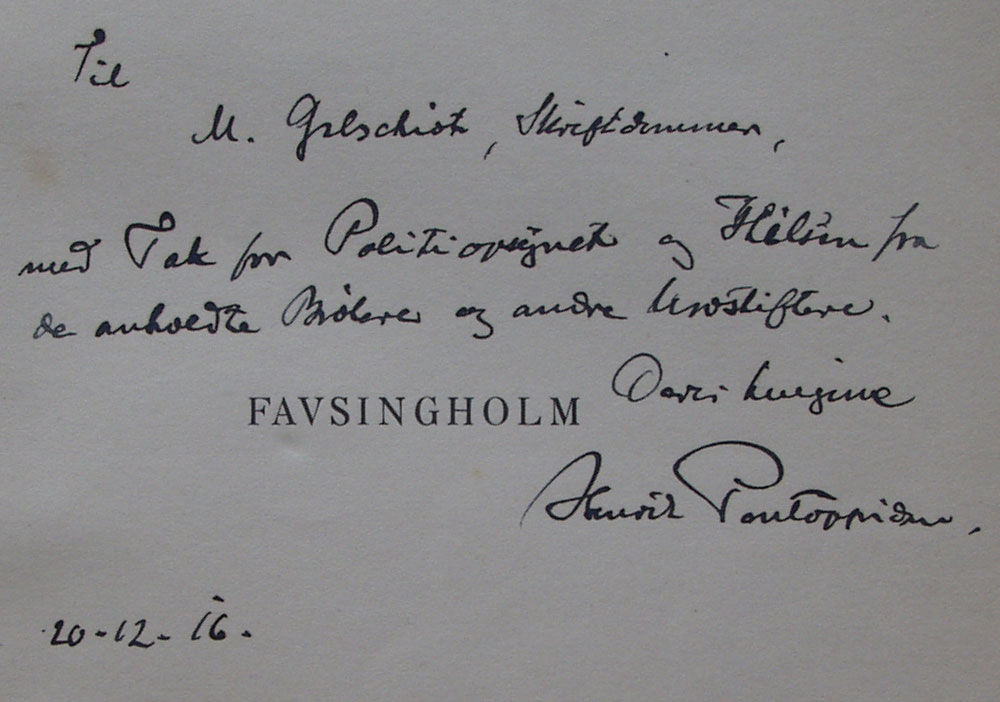 Til
M. Galschiøt, Skriftdommer,
med Tak for Politiopsynet og Hilsen fra
de anholdte Bislere og andre Urostiftere.
Deres hengivne
FAVSINGHOLM
Henrik Pontoppidan.
20-12-16.